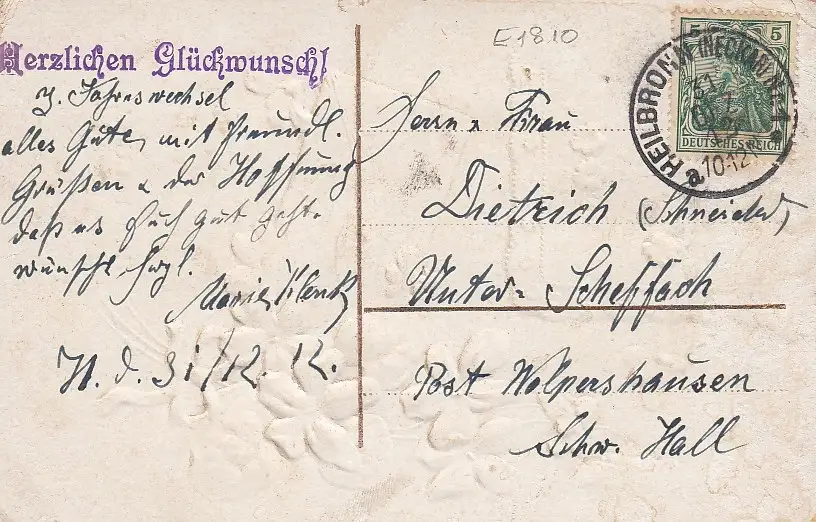 Herzlichen Glückwunsch!
z. Jahreswechsel
alles Gute, mit freundl.
Grüßen & der Hoffnung
daß es Euch gut geht.
wünscht
Marie Klenk
H. d. 31/12. 12.
E1810
Herrn & Frau
Dietrich (Schneider)
Unter-Scheffach
Post Wolpertshausen
Schw. Hall
5 5
DEUTSCHES REICH
HEILBRONN (NECKAR)
31
12
10-12
a